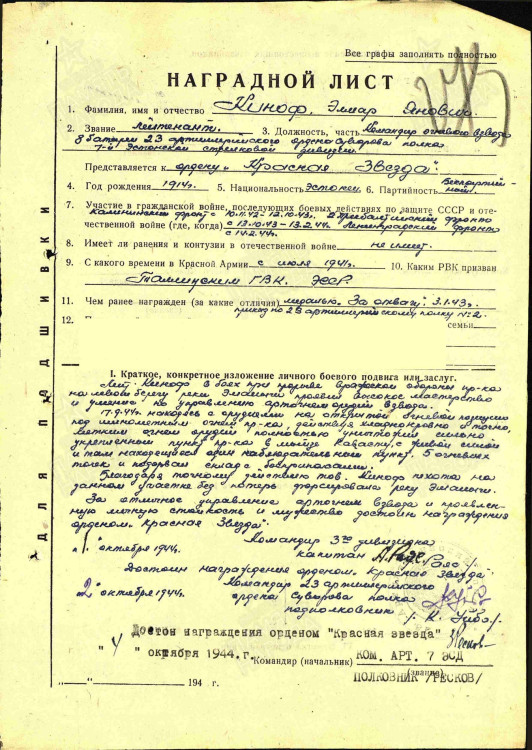 Все графы заполнять полностью
НАГРАДНОЙ ЛИСТ
1. Фамилия, имя и отчество Киноф, Элмар Янович.
2. Звание лейтенант. 3. Должность, часть Командир огневого взвода
8 батареи 23 артиллерийского ордена Суворова полка
7-й Эстонской стрелковой дивизии.
Представляется к ордену „Красная Звезда".
4. Год рождения 1914г. 5. Национальность эстонец 6. Партийность беспартийный
7. Участие в гражданской войне, последующих боевых действиях по защите СССР и отече-
Калининский фронт с 10.11.42 - 12.10.43. 2 Прибалтийский фронт
ственной войне (где, когда) с 13.10.43 - 13.2.44. Ленинградский фронт
с 14.2.44.
8. Имеет ли ранения и контузии в отечественной войне не имеет.
9. С какого времени в Красной Армии с июля 1941г. 10. Каким РВК призван
ГВК, ЭССР
11. Чем ранее награжден (за какие отличия) медалью „За отвагу" 3.1.43г.
приказ по 23 артиллерийскому полку № 2.
12.
семьи
I. Краткое, конкретное изложение личного боевого подвига или заслуг.
Лейт. Киноф в боях при прорыве вражеской обороны пр-ка
на левом берегу реки Эмайыги проявил высокое мастерство
и умение по управлению артогнем орудий взвода.
17.9.44г. находясь с орудиями на открытой огневой позиции
под минометным огнем пр-ка, действуя хладнокровно и точно,
метким огнем орудий полностью уничтожил сильно
укрепленный пункт пр-ка в с живой силой
и там находящиеся один наблюдательный пункт, 5 огневых
точек и подорвал склад с боеприпасами.
Благодаря точному действию тов. Киноф пехота на
данном участке без потерь форсировала реку Эмайыги.
За отличное управление артогнем взвода и проявлен-
ную личную стойкость и мужество достоин награждения
орденом „Красная Звезда".
Командир 3го дивизиона
„1" октября 1944г. капитан
Достоин награждения орденом „Красная Звезда"
Командир 23 артиллерийского
2 октября 1944г. ордена Суворова полка
подполковник
Достоин награждения орденом "Красная звезда"
"4" октября 1944.г. Командир (начальник) КОМ. АРТ. 7 ЭСД
(звание)
ПОЛКОВНИК /РЕСКОВ/
" " 194 г.
ДЛЯ ПОДШИВКИ